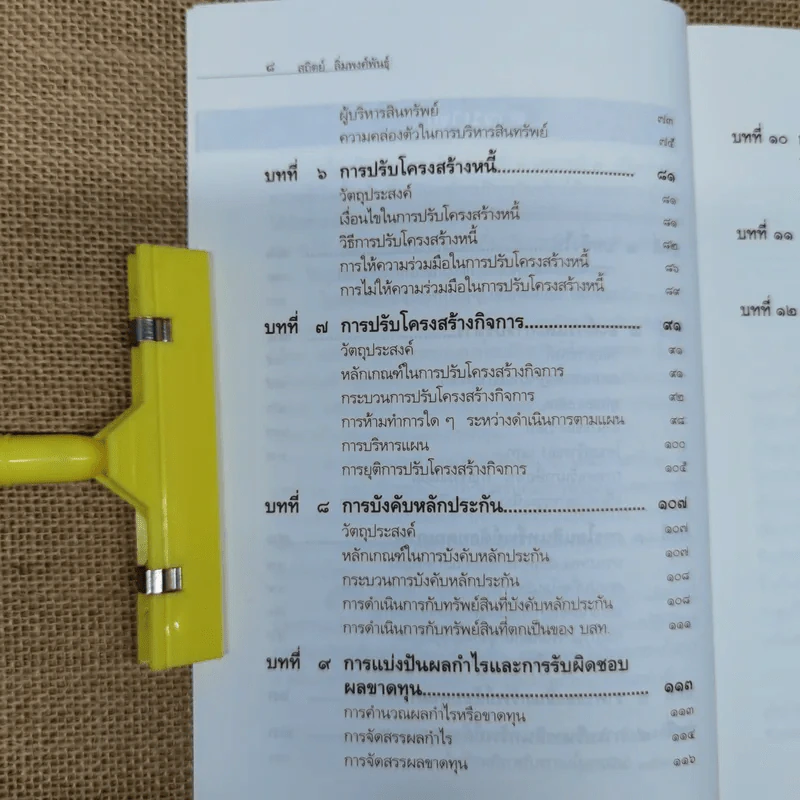 ๘ สถิตย์ ลิ่มพงศ์พันธุ์
ผู้บริหารสินทรัพย์ ๗๓
ความคล่องตัวในการบริหารสินทรัพย์ ๗๕
บทที่ ๖ การปรับโครงสร้างหนี้.............................. ๘๑
วัตถุประสงค์ ๘๑
เงื่อนไขในการปรับโครงสร้างหนี้ ๘๑
วิธีการปรับโครงสร้างหนี้ ๘๒
การให้ความร่วมมือในการปรับโครงสร้างหนี้ ๘๖
การไม่ให้ความร่วมมือในการปรับโครงสร้างหนี้ ๘๙
บทที่ ๗ การปรับโครงสร้างกิจการ......................... ๙๑
วัตถุประสงค์ ๙๑
หลักเกณฑ์ในการปรับโครงสร้างกิจการ ๙๑
กระบวนการปรับโครงสร้างกิจการ ๙๒
การห้ามทำการใด ๆ ระหว่างดำเนินการตามแผน ๙๘
การบริหารแผน ๑๐๐
การยุติการปรับโครงสร้างกิจการ ๑๐๕
บทที่ ๘ การบังคับหลักประกัน............................... ๑๐๗
วัตถุประสงค์ ๑๐๗
หลักเกณฑ์ในการบังคับหลักประกัน ๑๐๗
กระบวนการบังคับหลักประกัน ๑๐๘
การดำเนินการกับทรัพย์สินที่บังคับหลักประกัน ๑๐๘
การดำเนินการกับทรัพย์สินที่ตกเป็นของ บสท. ๑๑๑
บทที่ ๙ การแบ่งปันผลกำไรและการรับผิดชอบ
ผลขาดทุน................................................ ๑๑๓
การคำนวณผลกำไรหรือขาดทุน ๑๑๓
การจัดสรรผลกำไร ๑๑๔
การจัดสรรผลขาดทุน ๑๑๖
บทที่ ๑๐
บทที่ ๑๑
บทที่ ๑๒